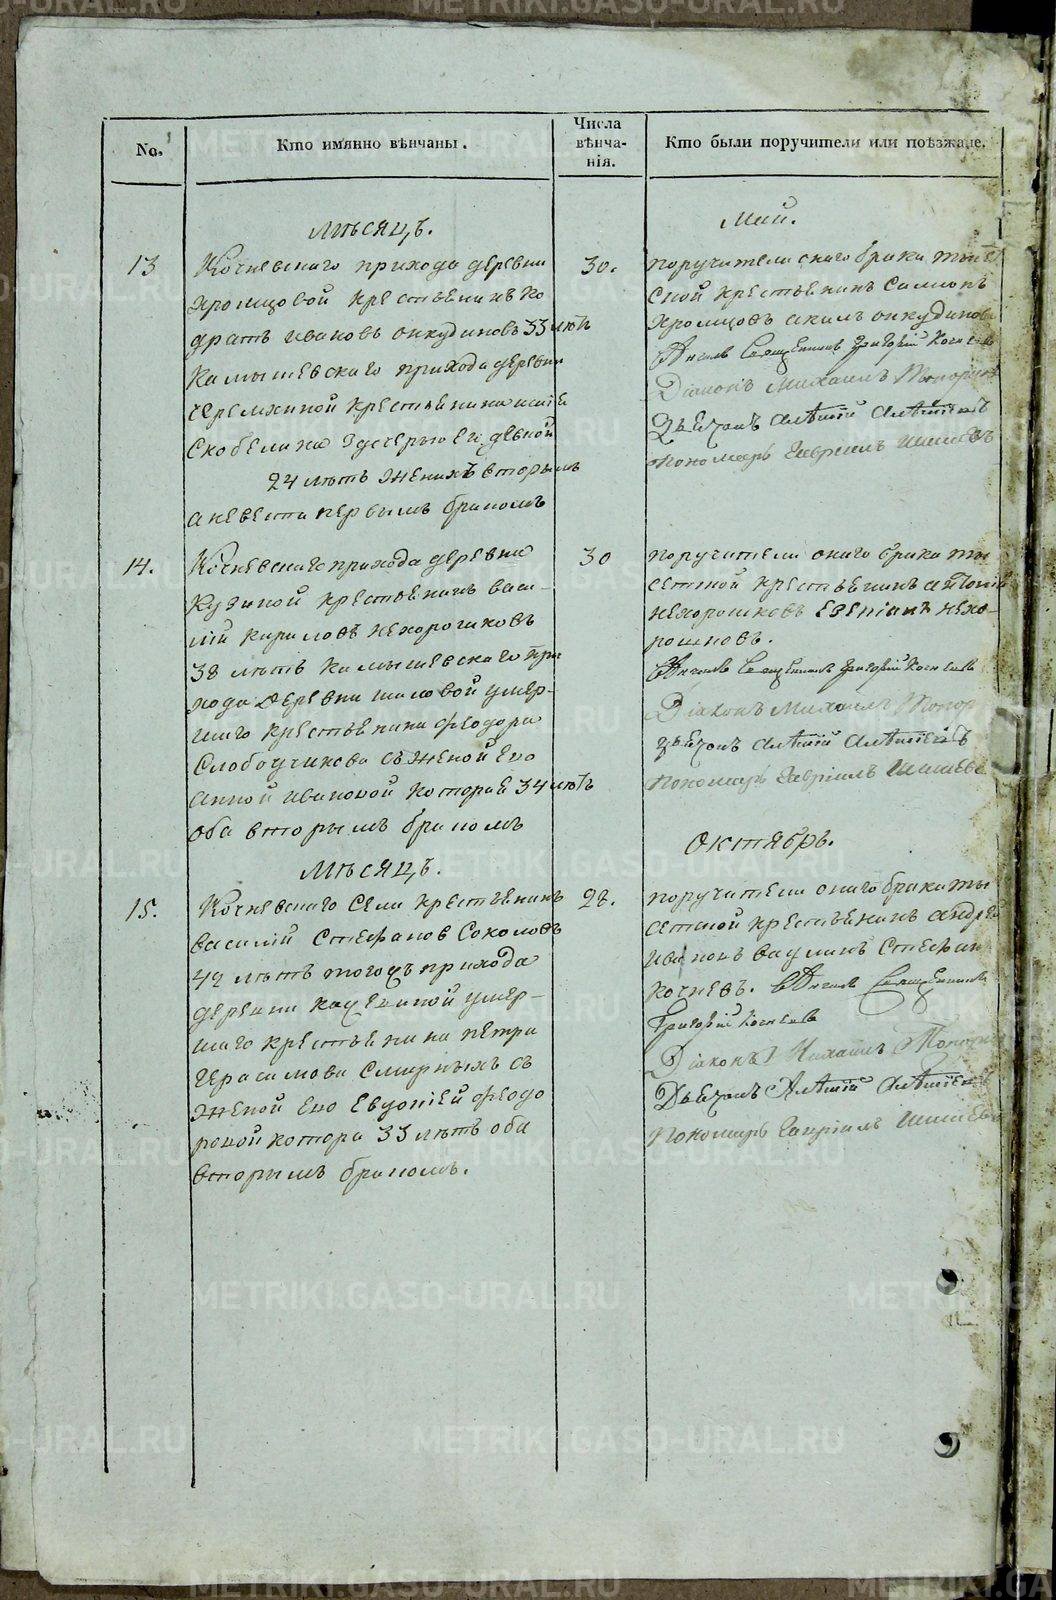 No.
Кто имянно вѣнчаны.
Числа
вѣнча-
нія.
Кто были поручители или поѣзжане.
Мѣсяцъ.
Май.
13
Кочневскаго прихода деревни
Хромцовой крестьянинъ Ко
дратъ Ивановъ Онкудиновъ 33 лѣтъ
Камышевскаго прихода деревни
Черемхиной крестьянина
Скобелина здочерью его девкой
24 лѣтъ женихъ вторымъ
а невеста первымъ бракомъ
30.
поручители онаго брака
крестьянинъ
Хромцовъ Акимъ Онкудиновъ
Священникъ Григорій
Діаконъ Михаилъ Топорковъ
Дьячокъ
Пономарь Гавріилъ Шишевъ
14.
Кочневскаго прихода деревни
Кузиной крестьянинъ Васи-
лій Кириловъ Нехорошковъ
38 лѣтъ Камышевскаго при
хода деревни Шиловой умер-
шаго крестьянина Феодора
Слободчикова съ женой его
Анной Ивановой которой 34 лѣтъ
оба вторымъ бракомъ
30
поручители онаго брака
крестьянинъ
Нехорошковъ Евгений Нехо-
рошковъ.
Священникъ Григорій
Діаконъ Михаилъ
Дьячокъ
Пономарь Гавріилъ Шишевъ
Мѣсяцъ.
Октябрь.
15.
Кочневскаго села крестьянинъ
Василій Стефановъ Соколовъ
42 лѣтъ тогожъ прихода
деревни умер-
шаго крестьянина Петра
Герасимова Смирныхъ съ
женой его Евдокіей Феодо
ровой котора 33 лѣтъ оба
вторымъ бракомъ.
28.
поручители онаго брака
крестьянинъ Андрей
Ивановъ Ваулинъ Стефанъ
Кочневъ. Священникъ
Григорій
Діаконъ Михаилъ
Дьячокъ
Пономарь Гавріилъ Шишевъ
METRIKI.GASO-URAL.RU